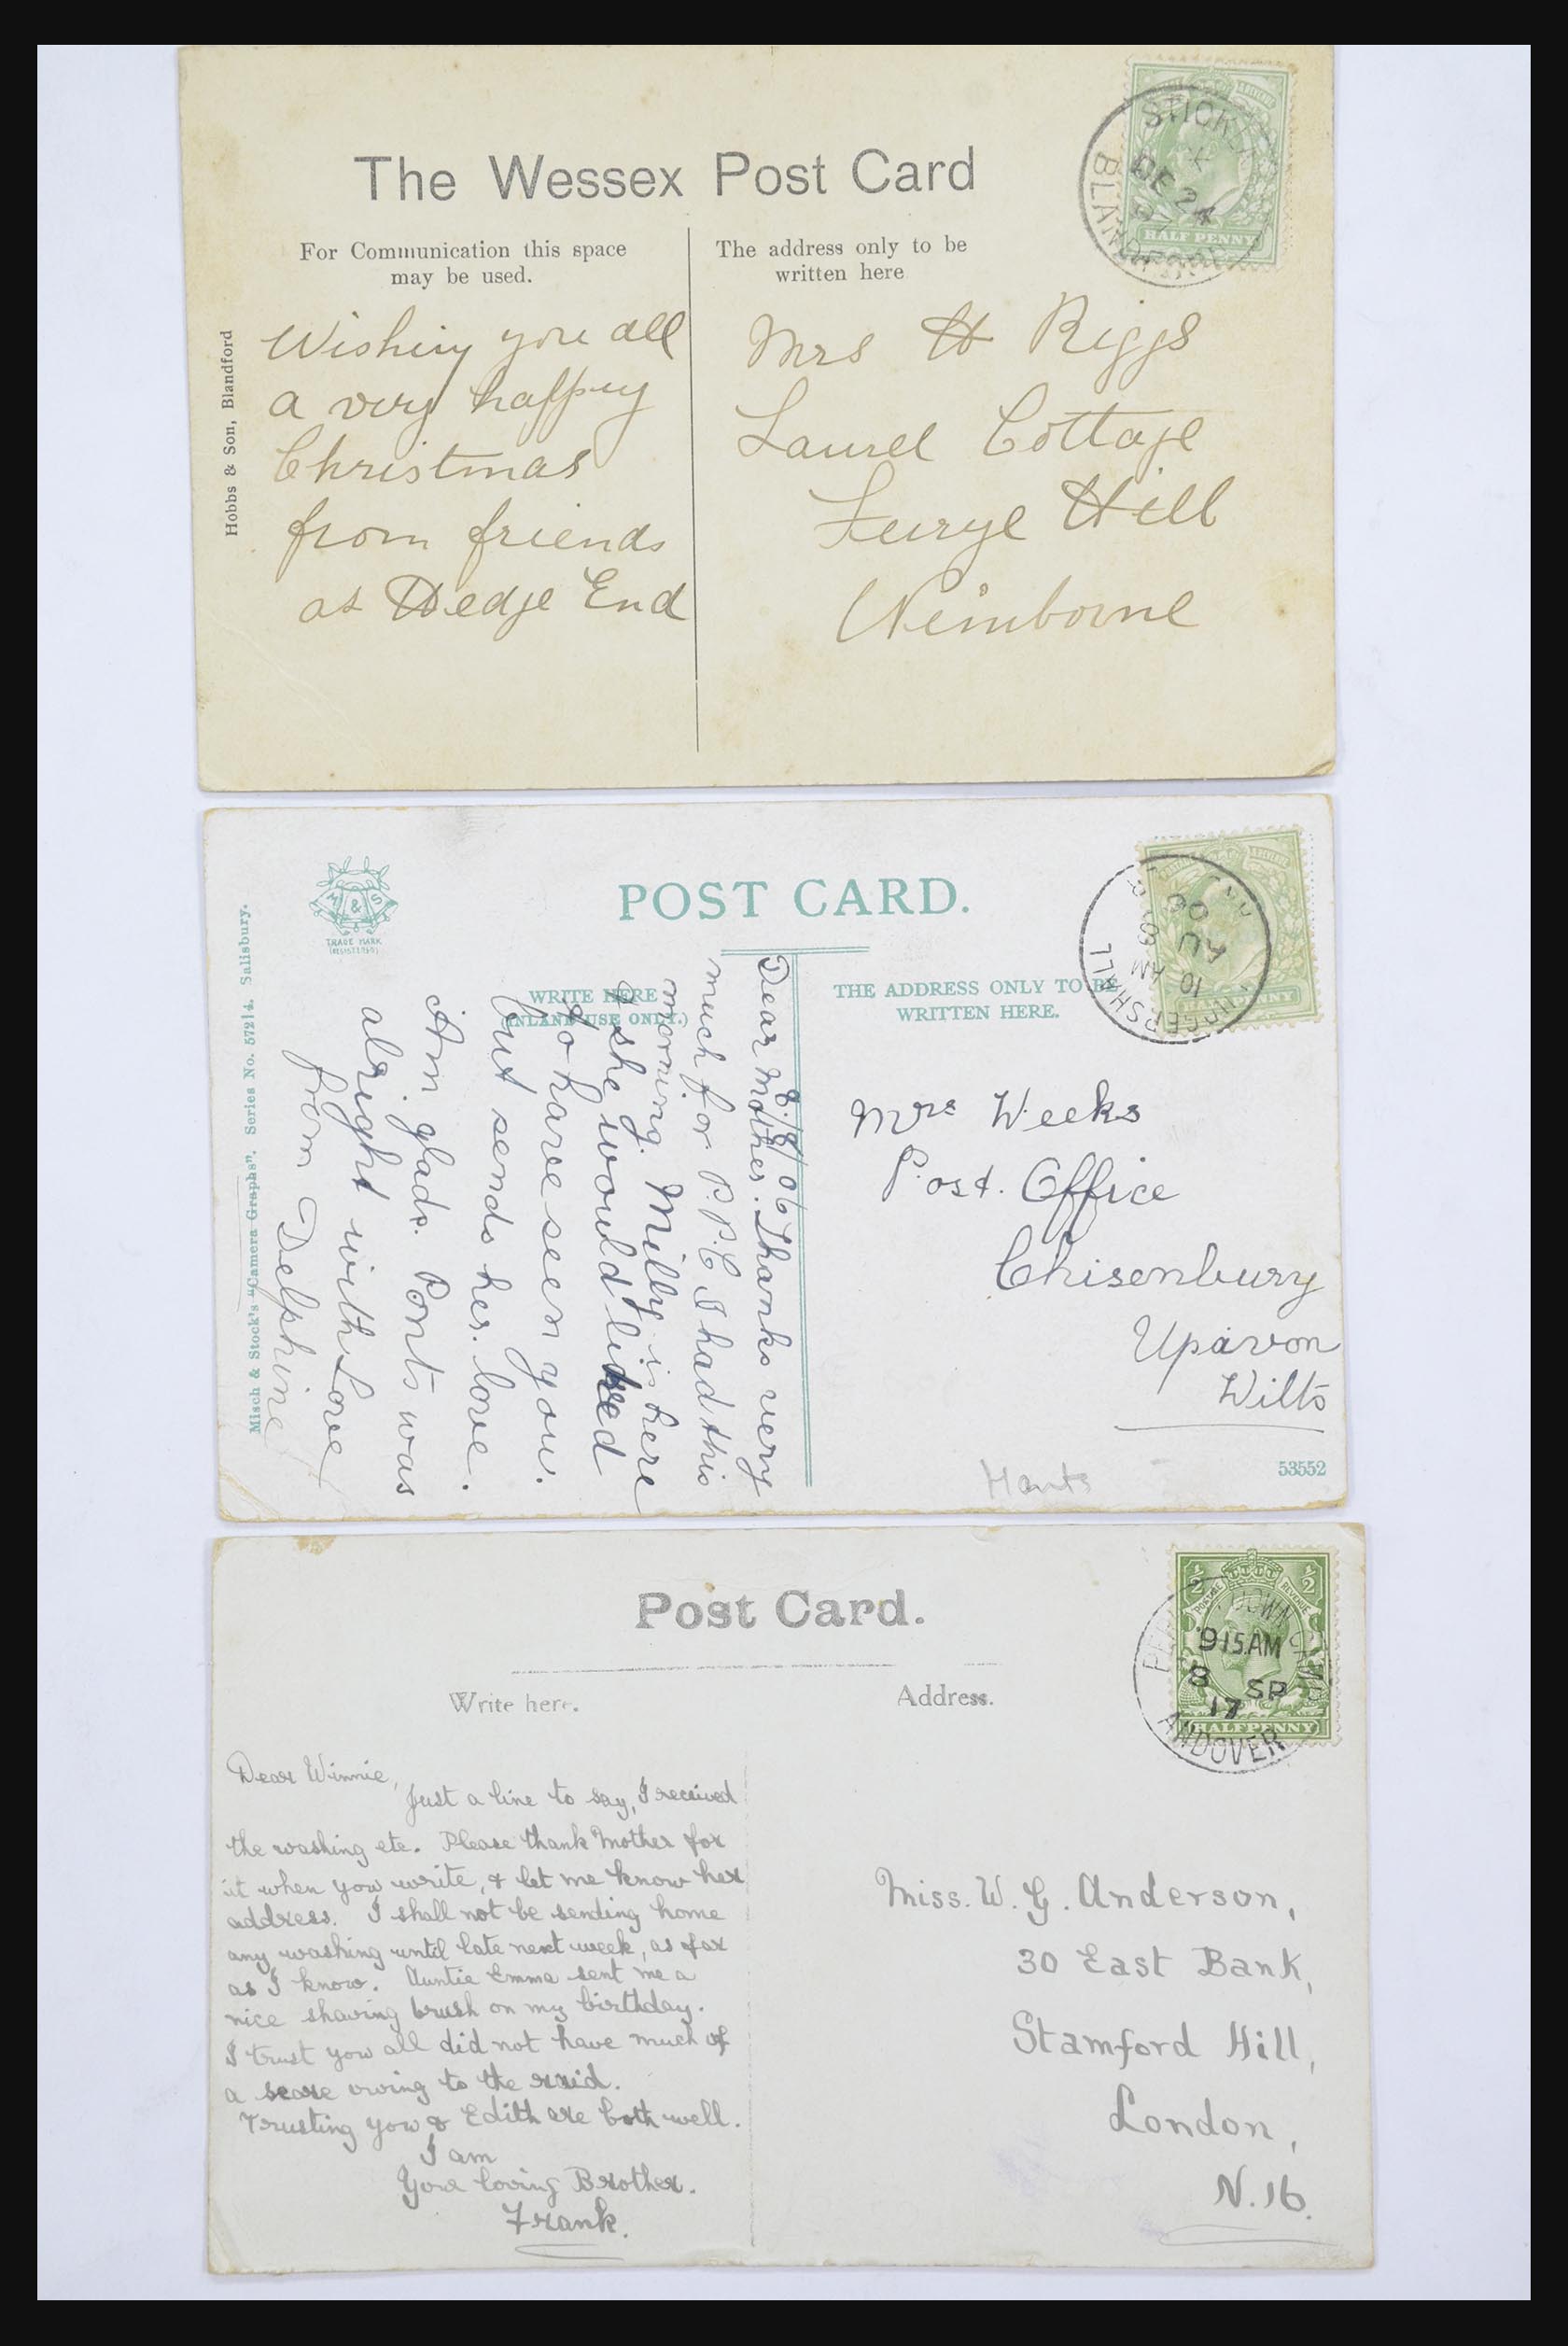 The Wessex Post Card
For Communication this space
may be used.
The address only to be
written here
Hobbs & Son, Blandford
Wishing you all
a very happy
Christmas
from friends
at Hedge End
Mrs H Riggs
Laurel Cottage
Furze Hill
Wimborne
BLANDFORD
DE 24
07
HALF PENNY
POST CARD.
M & S
TRADE MARK
(REGISTERED)
Misch & Stock's "Camera Graphs". Series No. 572/4. Salisbury.
WRITE HERE
(INLAND USE ONLY.)
THE ADDRESS ONLY TO BE
WRITTEN HERE.
8/8/06
Dear Mother. Thanks very
much for P.P.C I had this
morning. Milly is here
& she would liked
to have seen you.
but sends her love.
Am glad. Pont was
alright with Love
from Delphine
10 AM
AU
06
Mrs Weeks
Post. Office
Chisenbury
Upavon
Wilts
Hants
53552
Post Card.
Write here.
Address.
DOWN CAMP
9 15 AM
8 SP
17
ANDOVER
HALFPENNY
Dear Winnie,
Just a line to say, I received
the washing etc. Please thank Mother for
it when you write, & let me know her
address. I shall not be sending home
any washing until late next week, as far
as I know. Auntie Emma sent me a
nice shaving brush on my birthday.
I trust you all did not have much of
a scare owing to the raid.
Trusting you & Edith are both well.
I am
Your loving Brother.
Frank.
Miss. W. G. Anderson,
30 East Bank,
Stamford Hill,
London,
N.16.